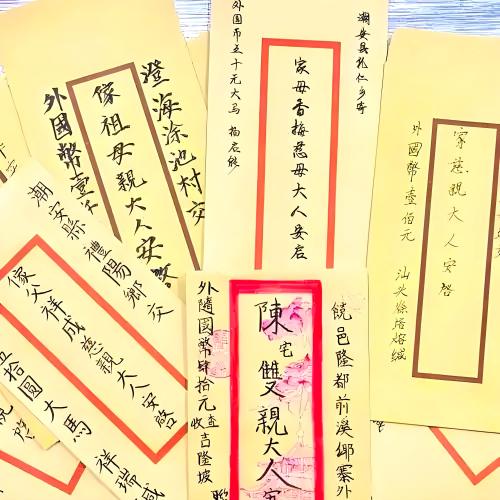 澄海涂池村交
傢祖母親大人安啓
外國幣壹
潮安县礼仁乡寄
家母香梅慈母大人安启
外国币五十元大马
家慈親大人安啓
外國幣壹佰元
潮安縣禮陽鄉交
傢父祥成慈親大人安啓
五拾圓大馬
祥瑞
饒邑隆都前溪鄉寨外
陳宅雙親大人安
外隨國幣肆拾元查收吉隆坡